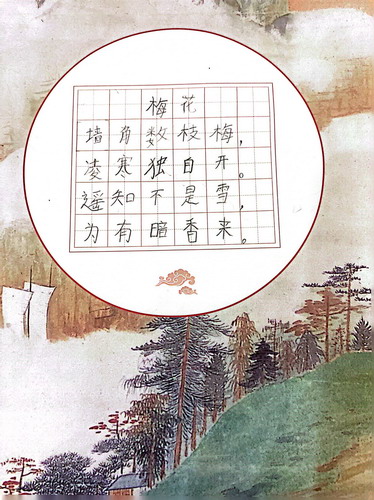 梅花
墙角数枝梅，
凌寒独自开。
遥知不是雪，
为有暗香来。